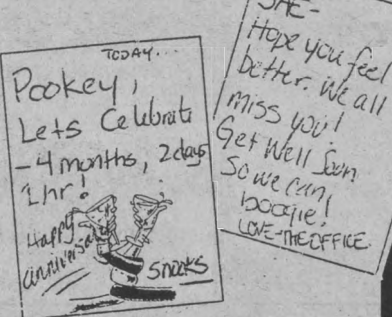 TODAY...
Pookey,
Lets Celebrate
- 4 months, 2 days
1 hr!
Happy
anniversary
Snooks
Hope you feel
better. We all
miss you!
Get Well Soon
So we can
boogie!
LOVE-THE OFFICE.